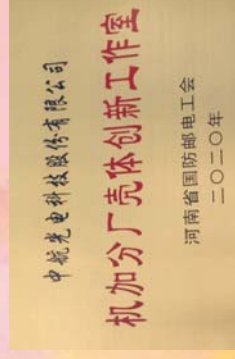 中航光电科技股份有限公司
机加分厂壳体创新工作室
河南省国防邮电工会
二〇二〇年